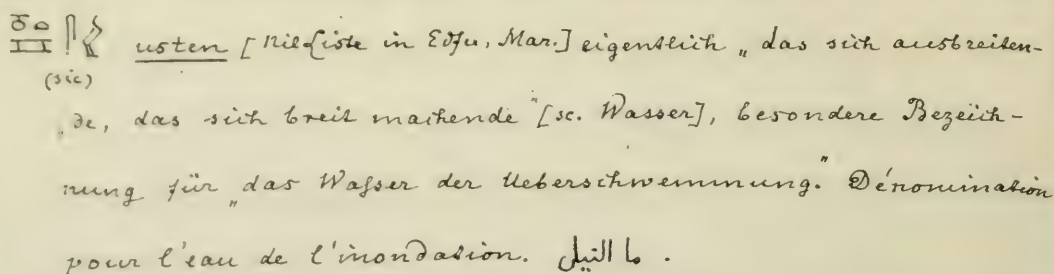 usten [Nilliste in Edfu, Mar.] eigentlich „das sich ausbreiten-
(sic)
„de, das sich breit machende" [sc. Wasser], besondere Bezeich-
nung für „das Waſser der Ueberschwemmung." Dénomination
pour l'eau de l'inondation. ما النيل.